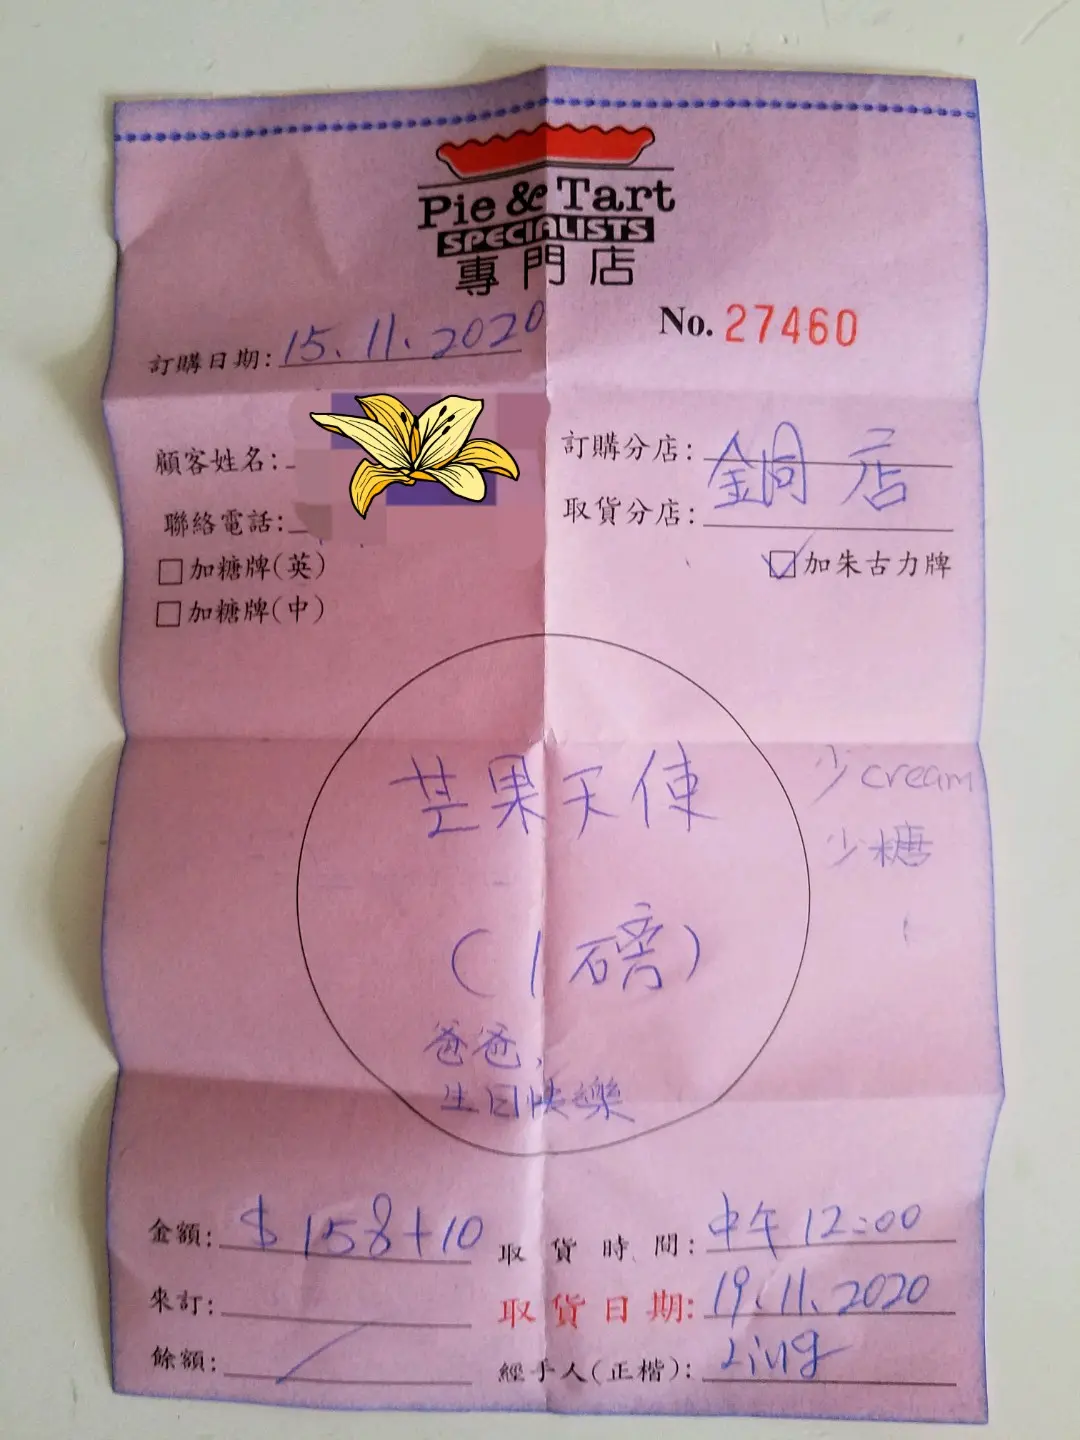 Pie & Tart
SPECIALISTS
專門店
No. 27460
訂購日期: 15.11.2020
顧客姓名:
訂購分店: 銅店
聯絡電話:
取貨分店:
加糖牌(英)
加朱古力牌
加糖牌(中)
芒果天使
少cream
少糖
(1磅)
爸爸,
生日快樂
金額: $158+10
取貨時間: 中午12:00
來訂:
取貨日期: 19.11.2020
餘額:
經手人(正楷): Ling